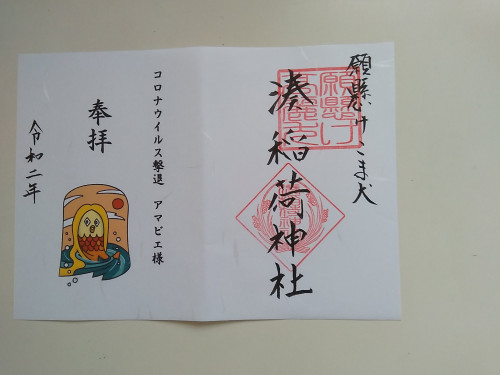 願懸け こま犬
湊稲荷神社
願懸け
高麗犬
コロナウイルス撃退 アマビエ様
奉拝
令和二年